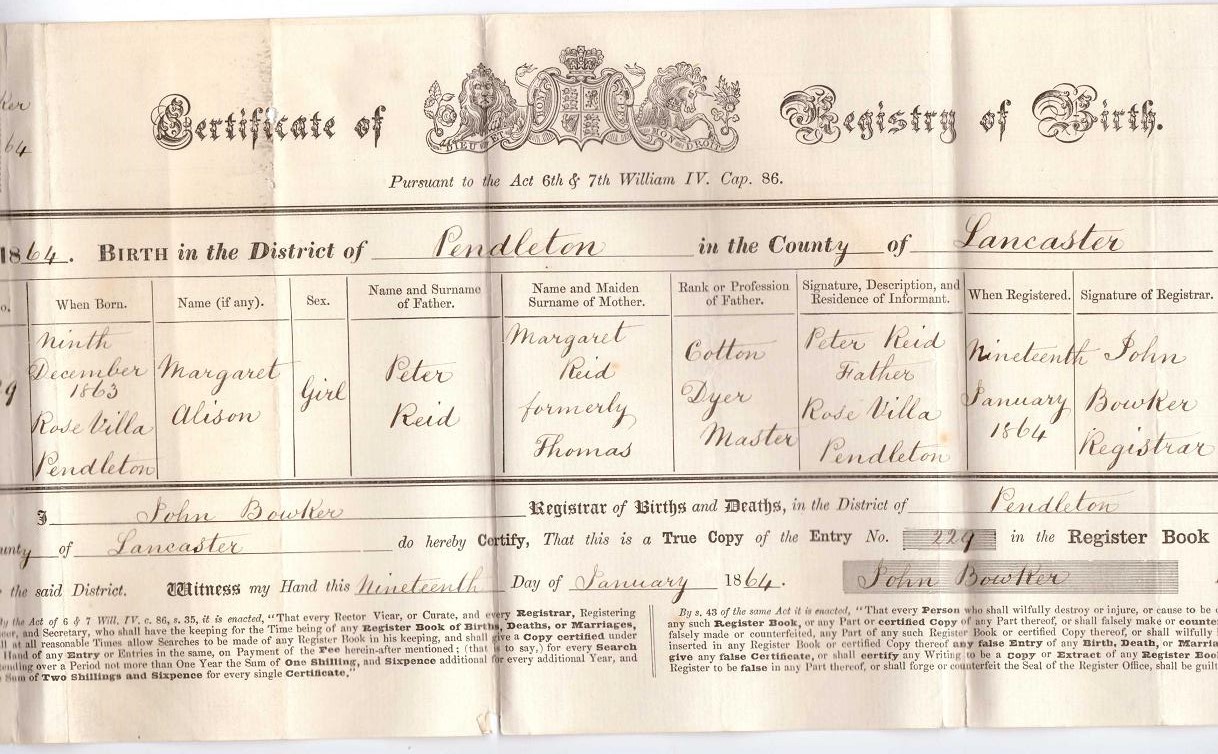 ker
64
Certificate of Registry of Birth.
DIEU ET MON DROIT
Pursuant to the Act 6th & 7th William IV. Cap. 86.
1864. BIRTH in the District of Pendleton in the County of Lancaster
o. When Born. Name (if any). Sex. Name and Surname of Father. Name and Maiden Surname of Mother. Rank or Profession of Father. Signature, Description, and Residence of Informant. When Registered. Signature of Registrar.
9
Ninth
December
1863
Rose Villa
Pendleton
Margaret
Alison
Girl
Peter
Reid
Margaret
Reid
formerly
Thomas
Cotton
Dyer
Master
Peter Reid
Father
Rose Villa
Pendleton
Nineteenth
January
1864
John
Bowker
Registrar
I John Bowker Registrar of Births and Deaths, in the District of Pendleton
unty of Lancaster do hereby Certify, That this is a True Copy of the Entry No. 229 in the Register Book
the said District. Witness my Hand this Nineteenth Day of January 1864. John Bowker
By the Act of 6 & 7 Will. IV. c. 86, s. 35, it is enacted, "That every Rector Vicar, or Curate, and every Registrar, Registering
cer, and Secretary, who shall have the keeping for the Time being of any Register Book of Births, Deaths, or Marriages,
ll at all reasonable Times allow Searches to be made of any Register Book in his keeping, and shall give a Copy certified under
Hand of any Entry or Entries in the same, on Payment of the Fee herein-after mentioned; (that is to say,) for every Search
ending over a Period not more than One Year the Sum of One Shilling, and Sixpence additional for every additional Year, and
Sum of Two Shillings and Sixpence for every single Certificate,"
By s. 43 of the same Act it is enacted, "That every Person who shall wilfully destroy or injure, or cause to be
any such Register Book, or any Part or certified Copy of any Part thereof, or shall falsely make or counter
falsely made or counterfeited, any Part of any such Register Book or certified Copy thereof, or shall wilfully
inserted in any Register Book or certified Copy thereof any false Entry of any Birth, Death, or Marria
give any false Certificate, or shall certify any Writing to be a Copy or Extract of any Register Boo
Register to be false in any Part thereof, or shall forge or counterfeit the Seal of the Register Office, shall be guilt